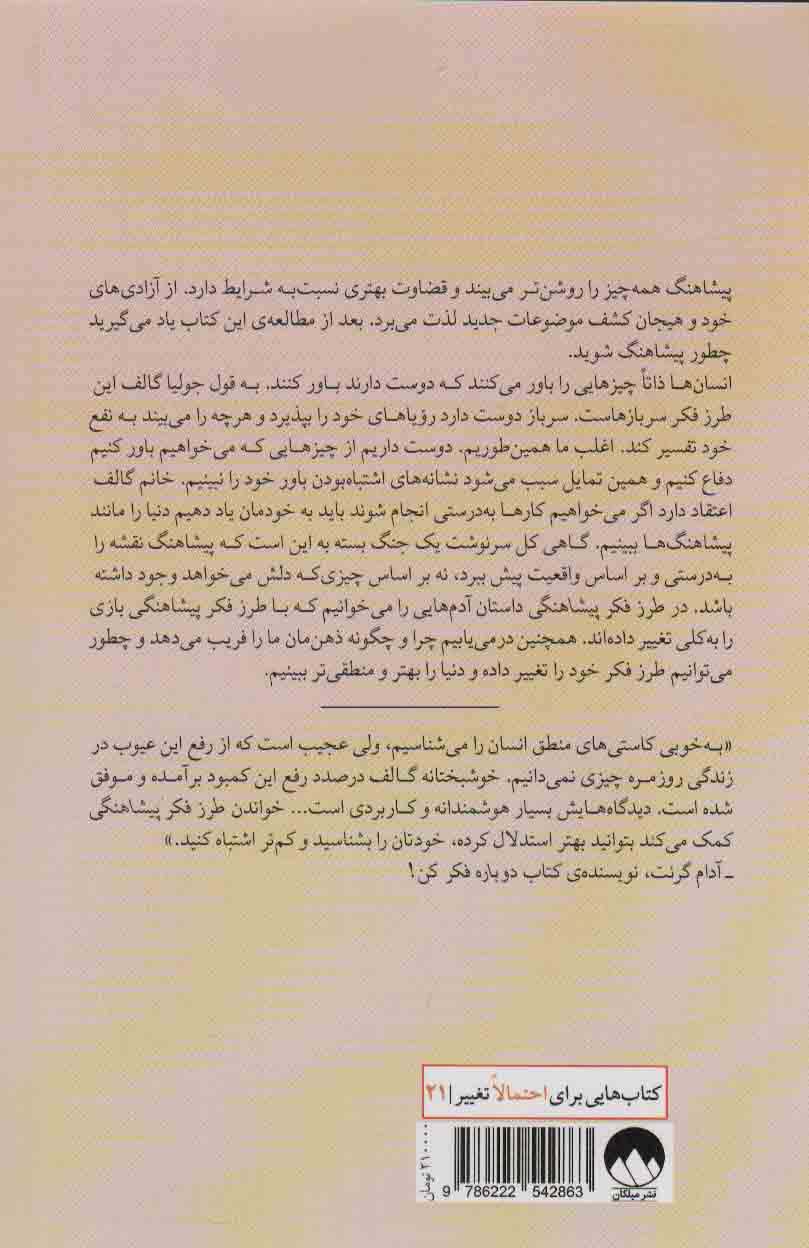 پیشاهنگ همه‌چیز را روشن‌تر می‌بیند و قضاوت بهتری نسبت‌به شرایط دارد. از آزادی‌های
خود و هیجان کشف موضوعات جدید لذت می‌برد. بعد از مطالعه‌ی این کتاب یاد می‌گیرید
چطور پیشاهنگ شوید.
انسان‌ها ذاتاً چیزهایی را باور می‌کنند که دوست دارند باور کنند. به قول جولیا گالف این
طرز فکر سربازهاست. سرباز دوست دارد رؤیاهای خود را بپذیرد و هرچه را می‌بیند به نفع
خود تفسیر کند. اغلب ما همین‌طوریم. دوست داریم از چیزهایی که می‌خواهیم باور کنیم
دفاع کنیم و همین تمایل سبب می‌شود نشانه‌های اشتباه‌بودن باور خود را نبینیم. خانم گالف
اعتقاد دارد اگر می‌خواهیم کارها به‌درستی انجام شوند باید به خودمان یاد دهیم دنیا را مانند
پیشاهنگ‌ها ببینیم. گاهی کل سرنوشت یک جنگ بسته به این است که پیشاهنگ نقشه را
به‌درستی و بر اساس واقعیت پیش ببرد، نه بر اساس چیزی‌که دلش می‌خواهد وجود داشته
باشد. در طرز فکر پیشاهنگی داستان آدم‌هایی را می‌خوانیم که با طرز فکر پیشاهنگی بازی
را به‌کلی تغییر داده‌اند. همچنین درمی‌یابیم چرا و چگونه ذهن‌مان ما را فریب می‌دهد و چطور
می‌توانیم طرز فکر خود را تغییر داده و دنیا را بهتر و منطقی‌تر ببینیم.
«به‌خوبی کاستی‌های منطق انسان را می‌شناسیم، ولی عجیب است که از رفع این عیوب در
زندگی روزمره چیزی نمی‌دانیم. خوشبختانه گالف درصدد رفع این کمبود برآمده و موفق
شده است. دیدگاه‌هایش بسیار هوشمندانه و کاربردی است... خواندن طرز فکر پیشاهنگی
کمک می‌کند بتوانید بهتر استدلال کرده، خودتان را بشناسید و کم‌تر اشتباه کنید.»
ـ آدام گرنت، نویسنده‌ی کتاب دوباره فکر کن!
کتاب‌هایی برای احتمالاً تغییر | ۲۱
۲۱۰۰۰۰ تومان
9 786222 542863
نشر میلکان